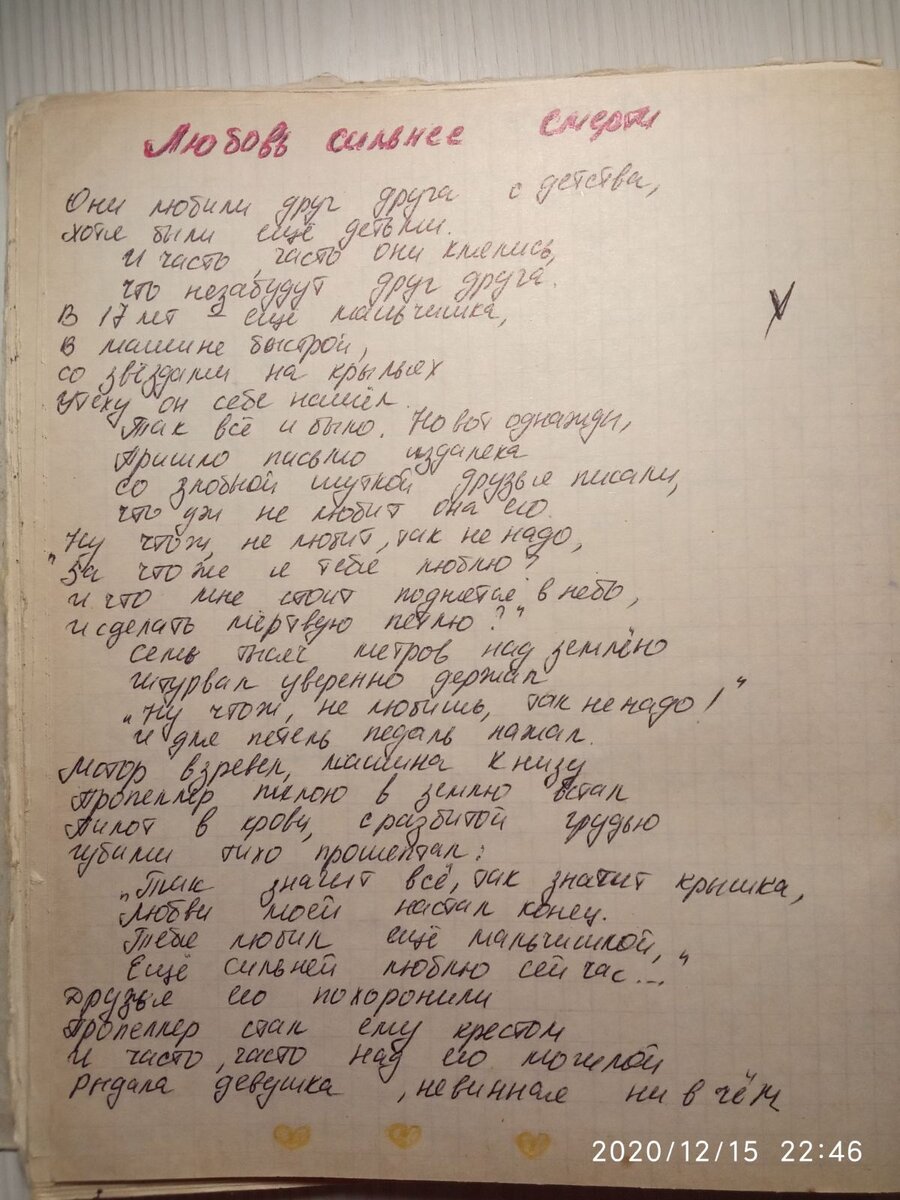 Любовь сильнее смерти
Они любили друг друга с детства,
хотя были ещё детьми.
И часто, часто они клялись,
что незабудут друг друга.
В 17 лет – ещё мальчишка,
В машине быстрой,
со звёздами на крыльях
Утеху он себе нашёл.
Так всё и было. Но вот однажды,
Пришло письмо издалека
Со злобной шуткой друзья писали,
что уж не любит она его.
"Ну чтож, не любит, так не надо,
За что же я тебя люблю?
И что мне стоит поднятся в небо,
и сделать мёртвую петлю?"
Семь тысяч метров над землёю
Штурвал уверенно держал
"Ну чтож, не любишь, так не надо!"
И для петель педаль нажал.
Мотор взревел, машина к низу
Пропеллер пилою в землю встал
Пилот в крови, с разбитой грудью
губами тихо прошептал:
"Так значит всё, так значит крышка,
Любви моей настал конец.
Тебя любил ещё мальчишкой,
Ещё сильней люблю сейчас..."
Друзья его похоронили
Пропеллер стал ему крестом
И часто, часто над его могилой
Рыдала девушка, невинная ни в чём
2020/12/15 22:46